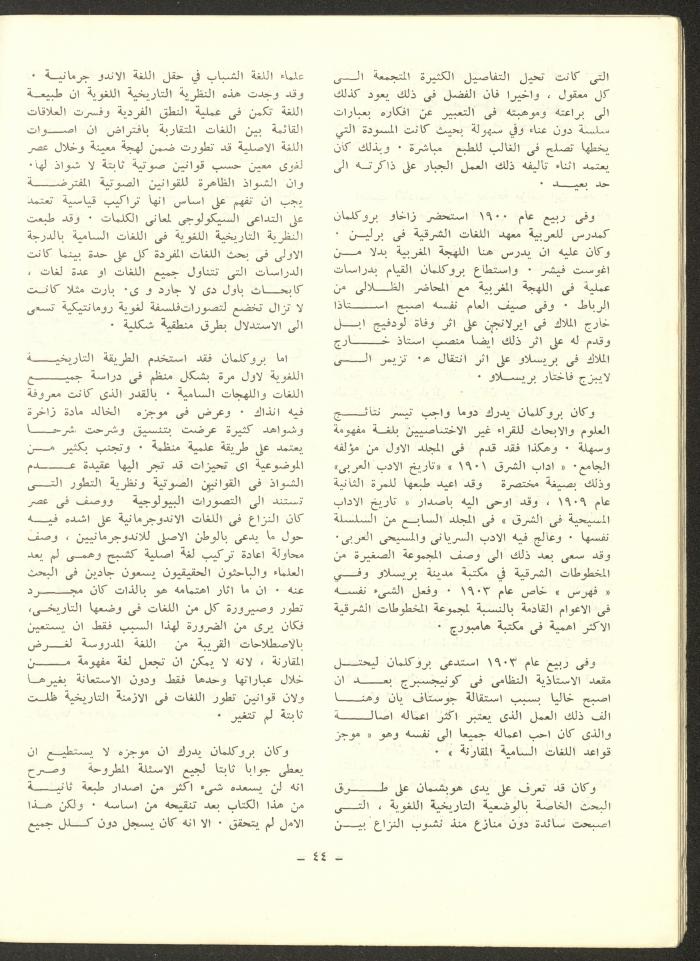 التى كانت تحيل التفاصيل الكثيرة المتجمعة الـــى
كل معقول ، واخيرا فان الفضل فى ذلك يعود كذلك
الى براعته وموهبته فى التعبير عن افكاره بعبارات
سلسة دون عناء وفي سهولة بحيث كانت المسودة التي
يخطها تصلح فى الغالب للطبع مباشرة ٠ وبذلك كان
يعتمد اثناء تاليفه ذلك العمل الجبار على ذاكرتــه الى
حد بعيــد ٠
وفى ربيع عام ١٩٠٠ استحضر زاخاو بروكلمان
كمدرس للعربية معهد اللغات الشرقية فى برلين ٠
وكان عليه ان يدرس هنا اللهجة المغربية بدلا مــن
اغوست فيشر ٠ واستطاع بروكلمان القيام بدراسات
عملية فى اللهجة المغربية مع المحاضر الظــلالى من
الرباط ٠ وفى صيف العام نفسه اصبح استــــاذا
خارج الملاك فى ايرلانجن على اثر وفاة لودفيج ابــل
وقدم له على اثر ذلك ايضا منصب استاذ خـــارج
الملاك فى بريسلاو على اثر انتقال هـ٠ تزيمر الـــى
لايبزج فاختار بريســلاو ٠
وكان بروكلمان يدرك دوما واجب تيسر نتائــج
العلوم والابحاث للقراء غير الاختصاصيين بلغــة مفهومة
وسهلة ٠ وهكذا فقد قدم فى المجلد الاول من مؤلفه
الجامع٠ « اداب الشرق ١٩٠١ » «تاريخ الادب العربى»
وذلك بصيغة مختصرة وقد اعيد طبعها للمرة الثانية
عام ١٩٠٩ ، وقد اوحى اليه باصدار « تاريخ الاداب
المسيحية فى الشرق » فى المجلد السابــع من السلسلة
نفسها ٠ وعالج فيه الادب السريانى والمسيحى العربى٠
وقد سعى بعد ذلك الى وصف المجموعة الصغيرة من
المخطوطات الشرقية في مكتبة مدينة بريسلاو وفــي
« فهرس » خاص عام ١٩٠٣ ٠ وفعل الشىء نفســه
فى الاعوام القادمة بالنسبة لمجموعة المخطوطات الشرقية
الاكثر اهمية فى مكتبة هامبورج ٠
وفى ربيع عام ١٩٠٣ استدعى بروكلمان ليحتــل
مقعد الاستاذية النظامى فى كونيجسبرج بعــد ان
اصبح خاليا بسبب استقالة جوستاف يان وهنــا
الف ذلك العمل الذى يعتبر اكثر اعماله اصالـــة
والذى كان احب اعماله جميعا الى نفسه وهو « موجز
قواعد اللغات السامية المقارنة » ٠
وكان قد تعرف على يدى هوبشمان على طـــرق
البحث الخاصة بالوضعية التاريخية اللغوية ، التــى
اصبحت سائدة دون منازع منذ نشوب النزاع بيــن
علماء اللغة الشباب في حقل اللغة الاندو جرمانيــة ٠
وقد وجدت هذه النظرية التاريخية اللغوية ان طبيعــة
اللغة تكمن فى عملية النطق الفردية وفسرت العلاقات
القائمة بين اللغات المتقاربة بافتراض ان اصــوات
اللغة الاصلية قد تطورت ضمن لهجة معينة وخلال عصر
لغوى معين حسب قوانين صوتية ثابتة لا شواذ لها٠
وان الشواذ الظاهرة للقوانين الصوتية المفترضــة
يجب ان تفهم على اساس انها تراكيب قياسية تعتمد
على التداعى السيكولوجى لمعانى الكلمات ٠ وقد طبعت
النظرية التاريخية اللغوية فى اللغات السامية بالدرجة
الاولى فى بحث اللغات المفردة كل على حدة بينما كانت
الدراسات التى تتناول جميع اللغات او عدة لغات ،
كابحــاث باول دى لا جارد و ى٠ بارت مثلا كانــت
لا تزال تخضع لتصورات فلسفة لغوية رومانتيكية تسعى
الى الاستدلال بطرق منطقية شكلية ٠
اما بروكلمان فقد استخدم الطريقة التاريخيـــة
اللغوية لاول مرة بشكل منظم فى دراسة جميـــع
اللغات واللهجات السامية ٠ بالقدر الذى كانت معروفة
فيه انذاك ٠ وعرض في موجزه الخالد مادة زاخرة
وشواهد كثيرة عرضت بتنسيق وشرحت شرحــا
يعتمد على طريقة علمية منظمة ٠ وتجنب بكثير مــن
الموضوعية اى تحيزات قد تجر اليها عقيدة عـــدم
الشواذ فى القوانين الصوتية ونظرية التطور التــى
تستند الى التصورات البيولوجية ووصف فى عصر
كان النزاع فى اللغات الاندوجرمانية على اشده فيــه
حول ما يدعى بالوطن الاصلى للاندوجرمانيين ، وصف
محاولة اعادة تركيب لغة اصلية كشبح وهمــى لم يعد
العلماء والباحثون الحقيقيون يسعون جادين فى البحث
عنه ٠ ان ما اثار اهتمامه هو بالذات كان مجـــرد
تطور وصيرورة كل من اللغات فى وضعها التاريخى،
فكان يرى من الضرورة لهذا السبب فقط ان يستعين
بالاصطلاحات القريبة من اللغة المدروسة لغــرض
المقارنة ، لانه لا يمكن ان تجعل لغة مفهومة مـــن
خلال عباراتها وحدها فقط ودون الاستعانة بغيرهــا
ولان قوانين تطور اللغات فى الازمنة التاريخية ظلــت
ثابتة لم تتغير ٠
وكان بروكلمان يدرك ان موجزه لا يستطيــع ان
يعطى جوابا ثابتا لجيع الاسئلة المطروحة وصــرح
انه لن يسعده شىء اكثر من اصدار طبعة ثانيـــة
من هذا الكتاب بعد تنقيحه من اساسه ٠ ولكن هــذا
الامل لم يتحقق ٠ الا انه كان يسجل دون كـــلل جميع
– ٤٤ –